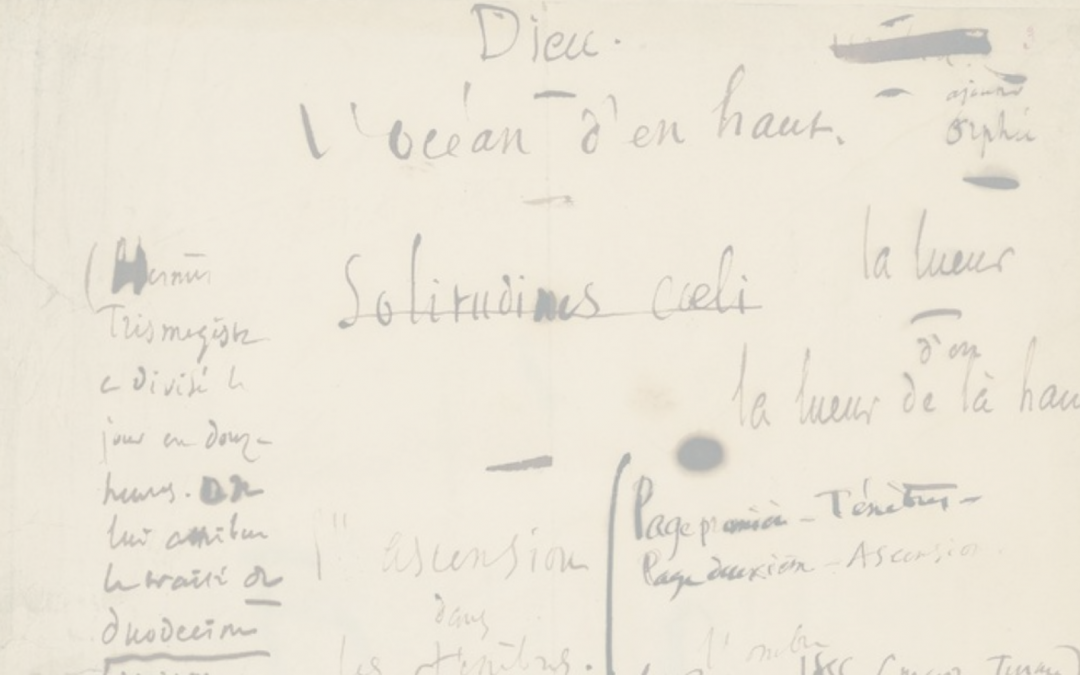 Dieu.
l'océan d'en haut.
ajouter
Orphée
Solitudines cœli
la lueur
d'en
la lueur de là hau
(Hermès
Trismégiste
a divisé le
jour en douze
heures. On
lui attribue
le traité de
duodecim
l'ascension
dans
les ténèbres.
Page première - Ténèbres -
Page deuxième - Ascension.
l'ombre